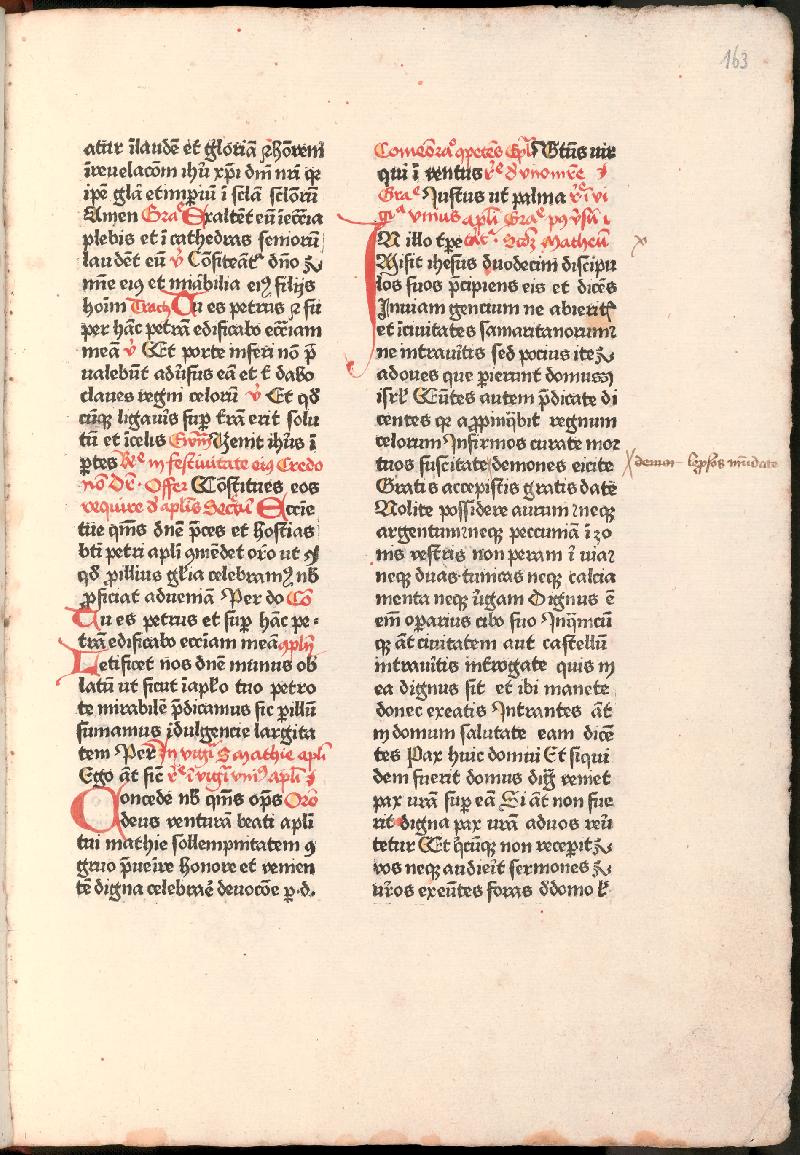 163
atur ī laudē et gloriā ⁊ honorem
ī reuelacōm ihū xp̄i dn̄i nr̄i qͥ
ip̄e glā et impiū ī scl̄a scl̄orū
Amen Graᵉ Exaltēt eū ī eccīa
plebis et ī cathedras seniorū
laudēt eū v̊ Cōfiteāt᷑ dn̄o
mīe eiꝰ et miābilia eiꝰ filijs
hoīm Tractꝰ Tu es petrus ⁊ sū
per hāc petrā edificabo ecc̄iam
meā v̊ Et porte inferi nō p̄
ualebūt adūsus eā et t̄ dabo
claues regni celorū v̊ Et qd̄
cūqꝫ ligauīs sup t̄rā erit solu
tū et ī celis Ewᵐ Venit ihūs ī
ꝑtes Reᵉ in festiuitate eiꝰ Credo
nō Dʳ Offer Cōstitues eos
require d̄ aplīs Secrᵐ Eccīe
tue qm̄s dn̄e p̄ces et hostias
bt̄i petri apl̄i ꝯmēdet orō ut
qd̄ ꝓ illius gl̄ia celebramꝰ nb̄
ꝓficiat ad ueniā Per do Cō
Tu es petrus et sup hāc pe-
trā edificabo ecc̄iam meā ꝯplᵐ
Letificet nos dn̄e munus ob
latū ut sicut ī apl̄o tuo petro
te mirabilē p̄dicamus sic ꝑ illū
sumamus īdulgencie largita
tem Per In vigī S mathie apl̄i
Ego āt sic̄ rᵉ ī vigī vniꝰ apl̄i
Concede nb̄ qm̄s op̄s Orō
deus venturā beati apl̄i
tui mathie sollempnitatem ꝯ
gruo p̄ueīre honore et venien
tē digna celebraē deuocōe ꝑ d.
Comēdraᵒ ꝯpetēs Epl̄a Btūs uir
qui ī ventus rᵉ d̄ vno mʳe
Graᵉ Justus ut palma rᵉ ī vi
giᵃ vnius apl̄i Graᵉ
In illo tp̄e Scdm̄ Matheū
Misit ihesus duodecim discipu
los suos p̄cipiens eis et dicēs
In uiam gencium ne abierit᷑
et ī ciuitates samaritanorum
ne intrauīts sed pocius ite
ad oues que perierunt domus
isrl̄ Eūtes autem p̄dicate di
centes qꝛ appīqͣbit regnum
celorum Infirmos curate mor
tuos suscitate demones eicite
Gratis accepistis gratis date
Nolite possidere aurum neqꝫ
argentum neqꝫ peccuniā ī zo
nis vestris non peram ī uia
neqꝫ duas tunicas neqꝫ calcia
menta neqꝫ ūgam Dignus ē
em̄ oparius cibo suo In qͣmcū
qꝫ āt ciuitatem aut castellū
intrauītis introgate quis in
ea dignus sit et ibi manete
donec exeatis Intrantes āt
in domum salutate eam dicē
tes Pax huic domui Et siqui
dem fuerit domus dig᷑ veniet
pax urā sup eā Si āt non fue
rit digna pax urā ad uos reū
tetur Et qͥcūqꝫ non recepit
vos neqꝫ audieīt sermones
uros exeūtes foras d̄ domo
lep̄sos mūdate